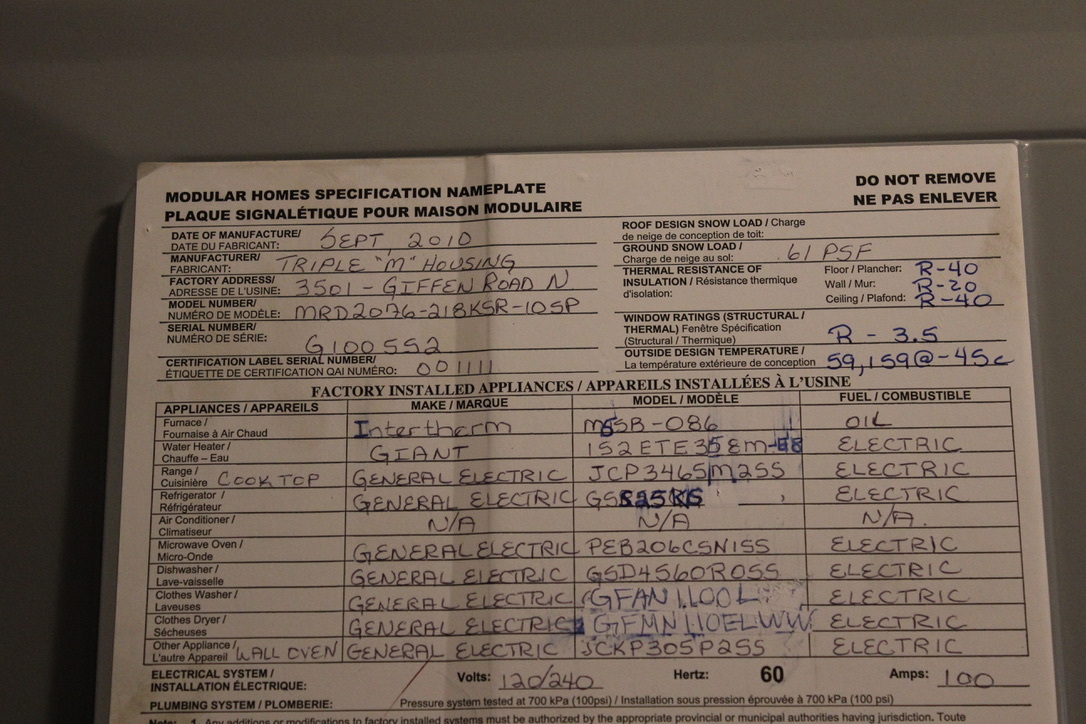 MODULAR HOMES SPECIFICATION NAMEPLATE
PLAQUE SIGNALÉTIQUE POUR MAISON MODULAIRE
DO NOT REMOVE
NE PAS ENLEVER
DATE OF MANUFACTURE/
DATE DU FABRICANT: SEPT, 2010
MANUFACTURER/
FABRICANT: TRIPLE "M" HOUSING
FACTORY ADDRESS/
ADRESSE DE L'USINE: 3501 - GIFFEN ROAD N
MODEL NUMBER/
NUMÉRO DE MODÈLE: MRD2076-218KSR-105P
SERIAL NUMBER/
NUMÉRO DE SÉRIE: G100552
CERTIFICATION LABEL SERIAL NUMBER/
ÉTIQUETTE DE CERTIFICATION QAI NUMÉRO: 001111
ROOF DESIGN SNOW LOAD / Charge
de neige de conception de toit:
GROUND SNOW LOAD /
Charge de neige au sol: 61 PSF
THERMAL RESISTANCE OF
INSULATION / Résistance thermique
d'isolation:
Floor / Plancher: R-40
Wall / Mur: R-20
Ceiling / Plafond: R-40
WINDOW RATINGS (STRUCTURAL /
THERMAL) Fenêtre Spécification
(Structural / Thermique) R - 3.5
OUTSIDE DESIGN TEMPERATURE /
La température extérieure de conception 59,159@-45c
FACTORY INSTALLED APPLIANCES / APPAREILS INSTALLÉES À L'USINE
APPLIANCES / APPAREILS MAKE / MARQUE MODEL / MODÈLE FUEL / COMBUSTIBLE
Furnace /
Fournaise à Air Chaud Intertherm OIL
Water Heater /
Chauffe – Eau GIANT ELECTRIC
Range /
Cuisinière COOKTOP GENERAL ELECTRIC ELECTRIC
Refrigerator /
Réfrigérateur GENERAL ELECTRIC ELECTRIC
Air Conditioner /
Climatiseur N/A N/A N/A.
Microwave Oven /
Micro-Onde GENERAL ELECTRIC PEB206CSN1SS ELECTRIC
Dishwasher /
Lave-vaisselle GENERAL ELECTRIC GSD4560R0SS ELECTRIC
Clothes Washer /
Laveuses GENERAL ELECTRIC GFAN1100L ELECTRIC
Clothes Dryer /
Sécheuses GENERAL ELECTRIC GFMN110ELWW ELECTRIC
Other Appliance /
L'autre Appareil WALL OVEN GENERAL ELECTRIC JCKP305P2SS ELECTRIC
ELECTRICAL SYSTEM /
INSTALLATION ÉLECTRIQUE: Volts: 120/240 Hertz: 60 Amps: 100
PLUMBING SYSTEM / PLOMBERIE: Pressure system tested at 700 kPa (100psi) / Installation sous pression éprouvée à 700 kPa (100 psi)
Note: 1. Any additions or modifications to factory installed systems must be authorized by the appropriate provincial or municipal authorities having jurisdiction. Toute